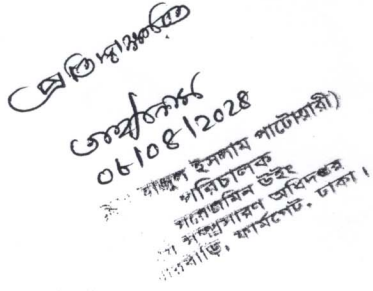 প্রতিস্বাক্ষরিত
০৮/০৪/২০২৪
ইসলাম পাটোয়ারী)
পরিচালক
সরেজমিন উইং
সম্প্রসারণ অধিদপ্তর
ফার্মগেট, ঢাকা।